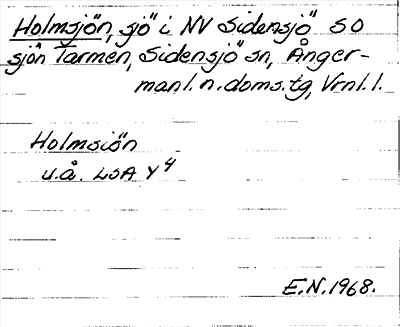 Holmsjön, sjö i NV Sidensjö SO
sjön Tarmen, Sidensjö sn, Ånger-
manl. n. doms. tg, Vrnl. l.
Holmsjön
u.å. LSA Y4
E.N. 1968.